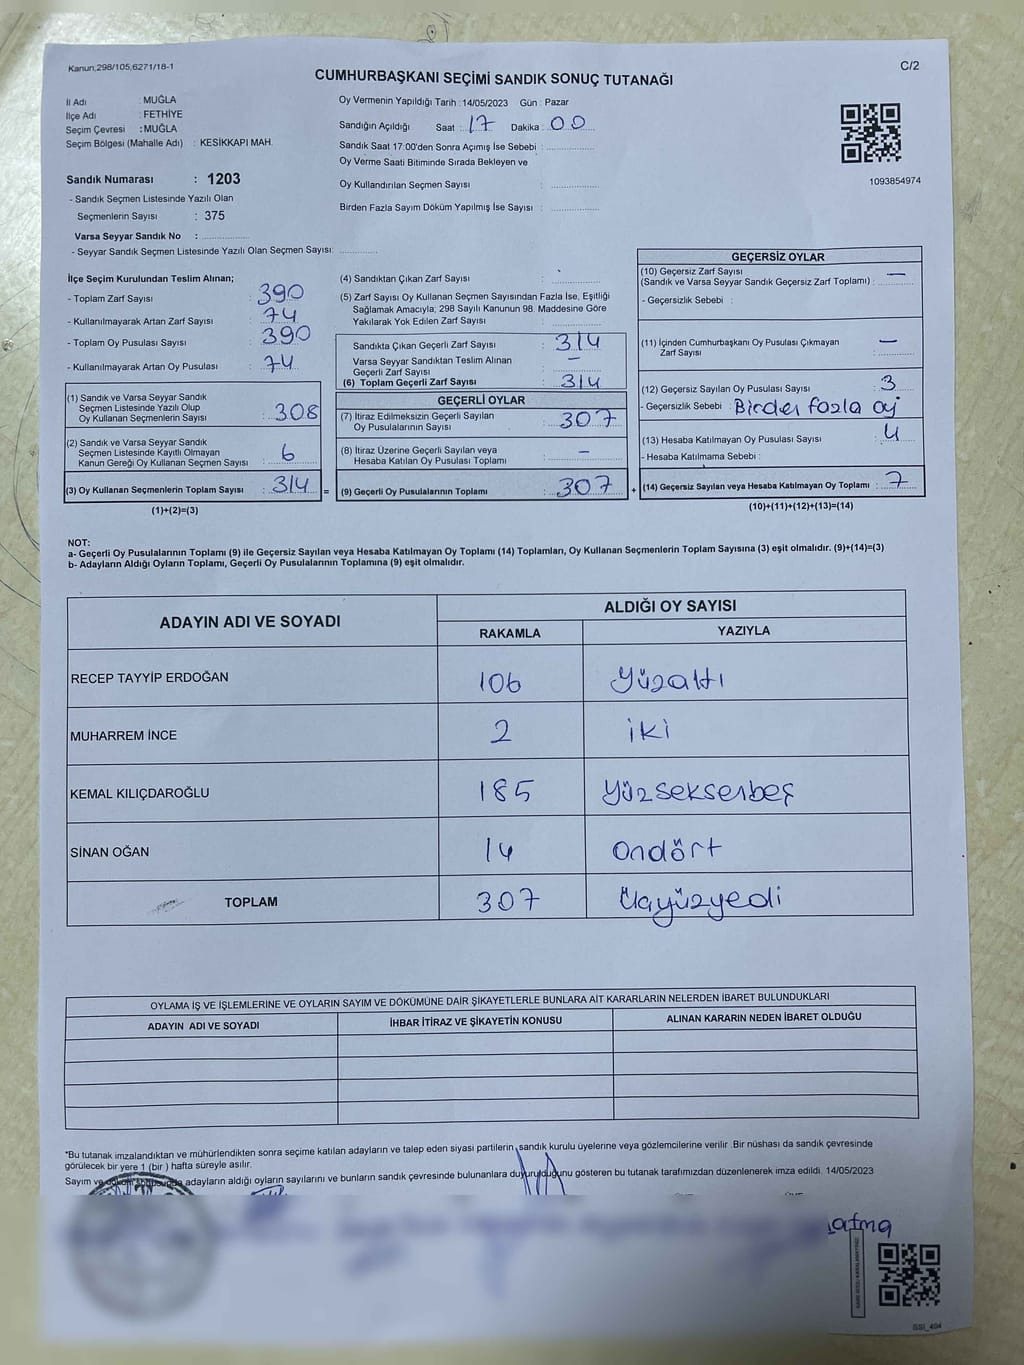 Kanun;298/105,6271/18-1
C/2
CUMHURBAŞKANI SEÇİMİ SANDIK SONUÇ TUTANAĞI
İl Adı : MUĞLA
İlçe Adı : FETHİYE
Seçim Çevresi : MUĞLA
Seçim Bölgesi (Mahalle Adı) : KESİKKAPI MAH.
Sandık Numarası : 1203
- Sandık Seçmen Listesinde Yazılı Olan
Seçmenlerin Sayısı : 375
Varsa Seyyar Sandık No :
- Seyyar Sandık Seçmen Listesinde Yazılı Olan Seçmen Sayısı:
Oy Vermenin Yapıldığı Tarih : 14/05/2023 Gün : Pazar
Sandığın Açıldığı Saat : 17 Dakika : 00
Sandık Saat 17:00'den Sonra Açımış İse Sebebi :
Oy Verme Saati Bitiminde Sırada Bekleyen ve
Oy Kullandırılan Seçmen Sayısı :
Birden Fazla Sayım Döküm Yapılmış İse Sayısı :
1093854974
İlçe Seçim Kurulundan Teslim Alınan;
- Toplam Zarf Sayısı : 390
- Kullanılmayarak Artan Zarf Sayısı : 74
- Toplam Oy Pusulası Sayısı : 390
- Kullanılmayarak Artan Oy Pusulası : 74
(1) Sandık ve Varsa Seyyar Sandık
Seçmen Listesinde Yazılı Olup
Oy Kullanan Seçmenlerin Sayısı : 308
(2) Sandık ve Varsa Seyyar Sandık
Seçmen Listesinde Kayıtlı Olmayan
Kanun Gereği Oy Kullanan Seçmen Sayısı : 6
(3) Oy Kullanan Seçmenlerin Toplam Sayısı : 314 =
(1)+(2)=(3)
(4) Sandıktan Çıkan Zarf Sayısı :
(5) Zarf Sayısı Oy Kullanan Seçmen Sayısından Fazla İse, Eşitliği
Sağlamak Amacıyla; 298 Sayılı Kanunun 98. Maddesine Göre
Yakılarak Yok Edilen Zarf Sayısı :
Sandıkta Çıkan Geçerli Zarf Sayısı : 314
Varsa Seyyar Sandıktan Teslim Alınan
Geçerli Zarf Sayısı : —
(6) Toplam Geçerli Zarf Sayısı : 314
GEÇERLİ OYLAR
(7) İtiraz Edilmeksizin Geçerli Sayılan
Oy Pusulalarının Sayısı : 307
(8) İtiraz Üzerine Geçerli Sayılan veya
Hesaba Katılan Oy Pusulası Toplamı : —
(9) Geçerli Oy Pusulalarının Toplamı : 307 +
GEÇERSİZ OYLAR
(10) Geçersiz Zarf Sayısı
(Sandık ve Varsa Seyyar Sandık Geçersiz Zarf Toplamı) : —
- Geçersizlik Sebebi :
(11) İçinden Cumhurbaşkanı Oy Pusulası Çıkmayan
Zarf Sayısı : —
(12) Geçersiz Sayılan Oy Pusulası Sayısı : 3
- Geçersizlik Sebebi : Birden fazla oy
(13) Hesaba Katılmayan Oy Pusulası Sayısı : 4
- Hesaba Katılmama Sebebi :
(14) Geçersiz Sayılan veya Hesaba Katılmayan Oy Toplamı : 7
(10)+(11)+(12)+(13)=(14)
NOT:
a- Geçerli Oy Pusulalarının Toplamı (9) ile Geçersiz Sayılan veya Hesaba Katılmayan Oy Toplamı (14) Toplamları, Oy Kullanan Seçmenlerin Toplam Sayısına (3) eşit olmalıdır. (9)+(14)=(3)
b- Adayların Aldığı Oyların Toplamı, Geçerli Oy Pusulalarının Toplamına (9) eşit olmalıdır.
ADAYIN ADI VE SOYADI
ALDIĞI OY SAYISI
RAKAMLA YAZIYLA
RECEP TAYYİP ERDOĞAN 106 Yüzaltı
MUHARREM İNCE 2 iki
KEMAL KILIÇDAROĞLU 185 Yüzseksenbeş
SİNAN OĞAN 14 Ondört
TOPLAM 307 Üçyüzyedi
OYLAMA İŞ VE İŞLEMLERİNE VE OYLARIN SAYIM VE DÖKÜMÜNE DAİR ŞİKAYETLERLE BUNLARA AİT KARARLARIN NELERDEN İBARET BULUNDUKLARI
ADAYIN ADI VE SOYADI İHBAR İTİRAZ VE ŞİKAYETİN KONUSU ALINAN KARARIN NEDEN İBARET OLDUĞU
*Bu tutanak imzalandıktan ve mühürlendikten sonra seçime katılan adayların ve talep eden siyasi partilerin sandık kurulu üyelerine veya gözlemcilerine verilir .Bir nüshası da sandık çevresinde
görülecek bir yere 1 (bir ) hafta süreyle asılır.
Sayım ve döküm sonucunda adayların aldığı oyların sayılarını ve bunların sandık çevresinde bulunanlara duyurulduğunu gösteren bu tutanak tarafımızdan düzenlenerek imza edildi. 14/05/2023